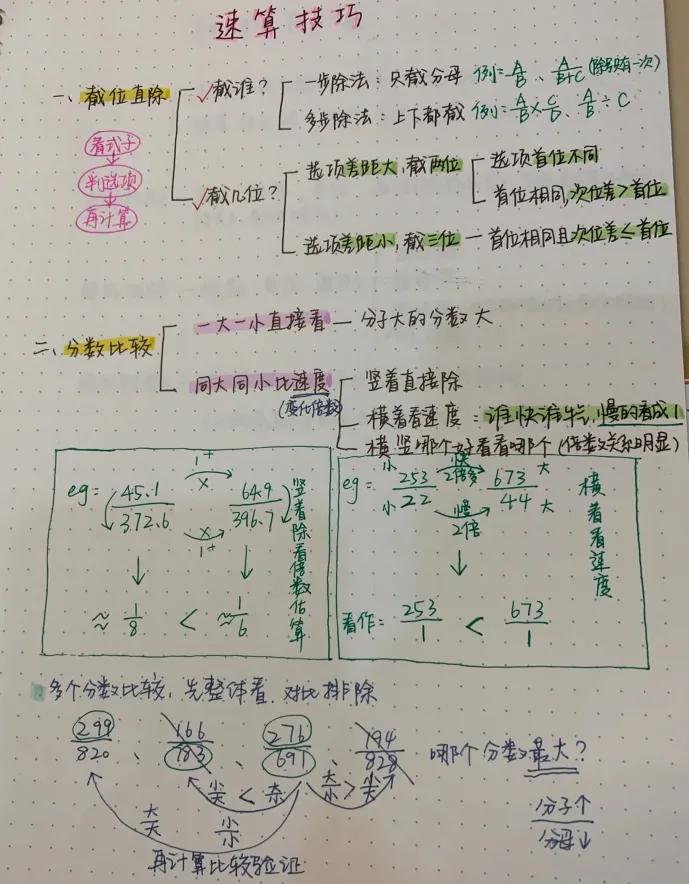 速算技巧
一、截位直除
√截谁?
一步除法:只截分母 例=A/B、A/B+C(除号只有一次)
多步除法:上下都截 例=A/B×C/D、A/B÷C
看式子
判选项
再计算
√截几位?
选项差距大,截两位
选项首位不同
首位相同,次位差>首位
选项差距小,截三位一首位相同且次位差≤首位
二、分数比较
一大一小直接看一分子大的分数大
同大同小比速度
(变化倍数)
竖着直接除
横着看速度:谁快谁牛,慢的看成1
横竖哪个好看看哪个(倍数关系明显)
eg= 45.1/372.6 1+ × 64.9/396.7
× 1+
≈1/8 < ≈1/6
竖着除看倍数估算
eg= 小 253/22 小 快 2倍多 大 673/44 大
慢 2倍
看作: 253/1 < 673/1
横着看速度
多个分数比较,先整体看,对比排除
299/820、166/783、276/691、194/828 哪个分数最大?
小/大 < 大/小 > 小/大
大/大 小/小
再计算比较验证
分子↑/分母↓